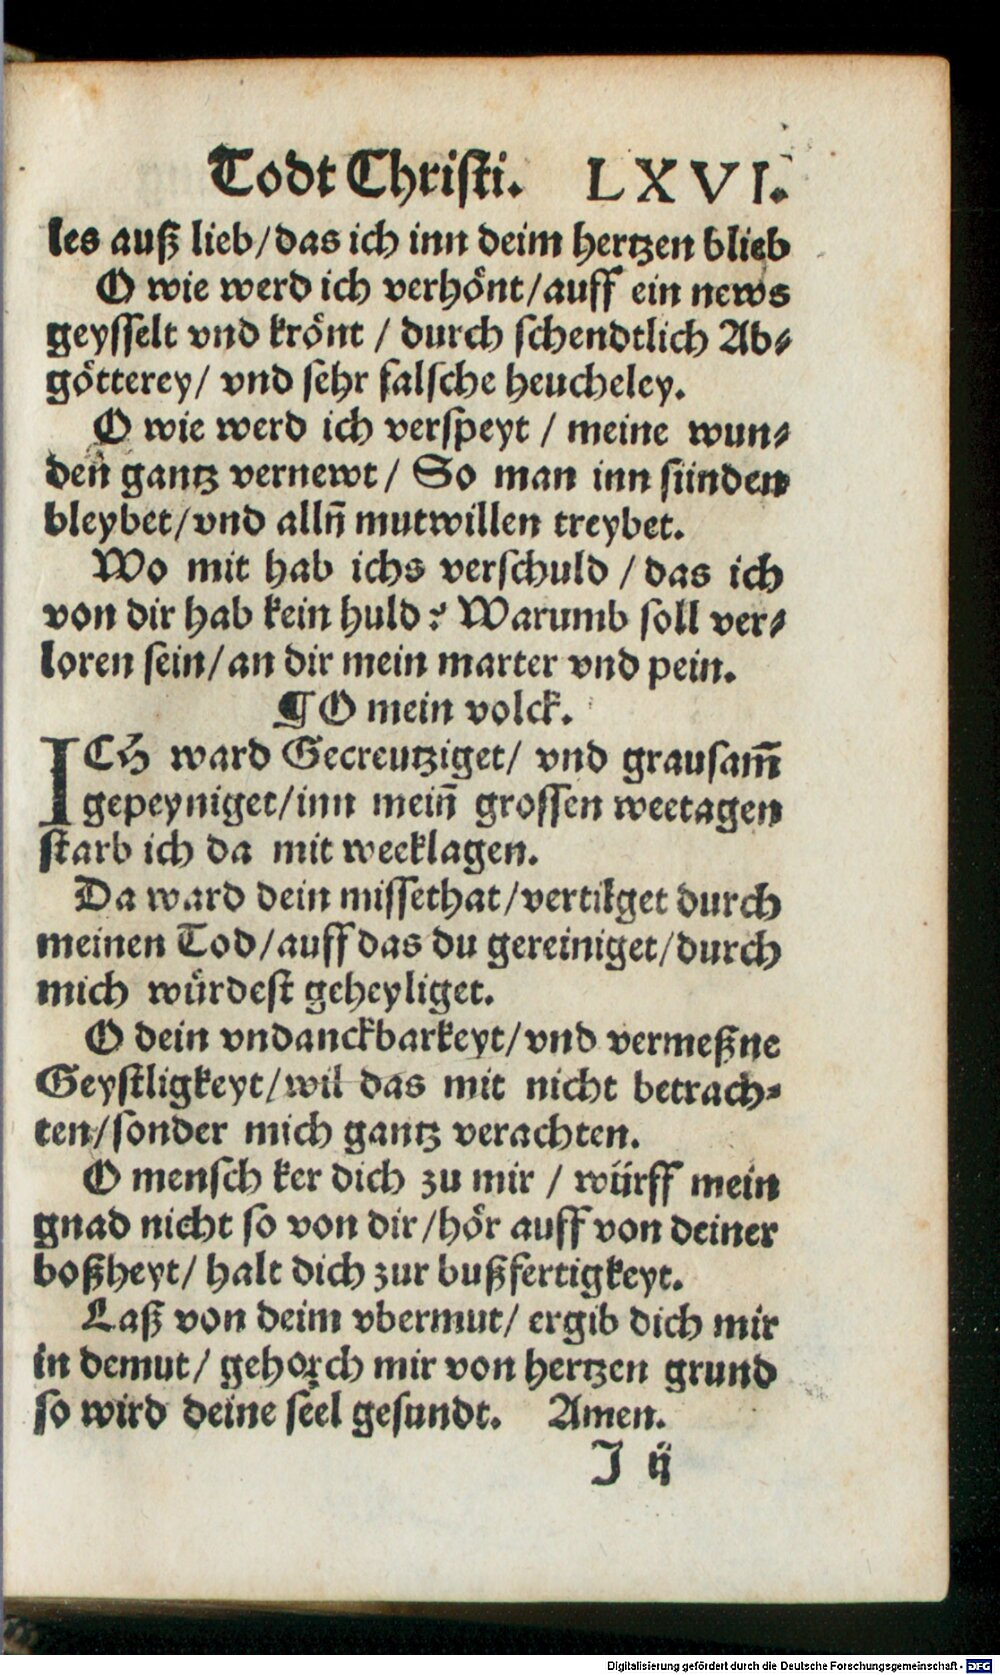 Todt Christi. LXVI.
les auß lieb/das ich inn deim hertzen blieb
O wie werd ich verhönt/auff ein news
geysselt vnd krönt / durch schendtlich Ab⸗
götterey/ vnd sehr falsche heucheley.
O wie werd ich verspeyt / meine wun⸗
den gantz vernewt / So man inn sünden
bleybet/vnd alln̄ mutwillen treybet.
Wo mit hab ichs verschuld / das ich
von dir hab kein huld? Warumb soll ver⸗
loren sein/an dir mein marter vnd pein.
¶ O mein volck.
ICH ward Gecreutziget/ vnd grausam̄
gepeyniget/inn mein̄ grossen weetagen
starb ich da mit weeklagen.
Da ward dein missethat/vertilget durch
meinen Tod/auff das du gereiniget/durch
mich würdest geheyliget.
O dein vndanckbarkeyt/vnd vermeßne
Geystligkeyt/wil das mit nicht betrach⸗
ten/sonder mich gantz verachten.
O mensch ker dich zu mir / würff mein
gnad nicht so von dir/hör auff von deiner
boßheyt/ halt dich zur bußfertigkeyt.
Laß von deim vbermut/ ergib dich mir
in demut/ gehorch mir von hertzen grund
so wird deine seel gesundt. Amen.
J ij
Digitalisierung gefördert durch die Deutsche Forschungsgemeinschaft - DFG